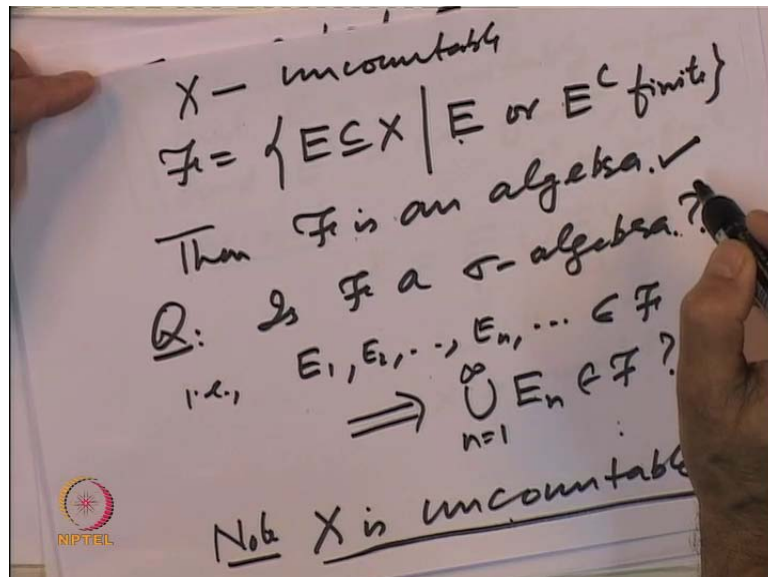 X – uncountable
ℱ = { E ⊆ X | E or E^c finite }
Then ℱ is an algebra. ✓
Q: Is ℱ a σ-algebra.?
i.e., E₁, E₂, .., Eₙ, ... ∈ ℱ
⟹ ∞ ∪ n=1 Eₙ ∈ ℱ ?
Note X is uncountable
NPTEL